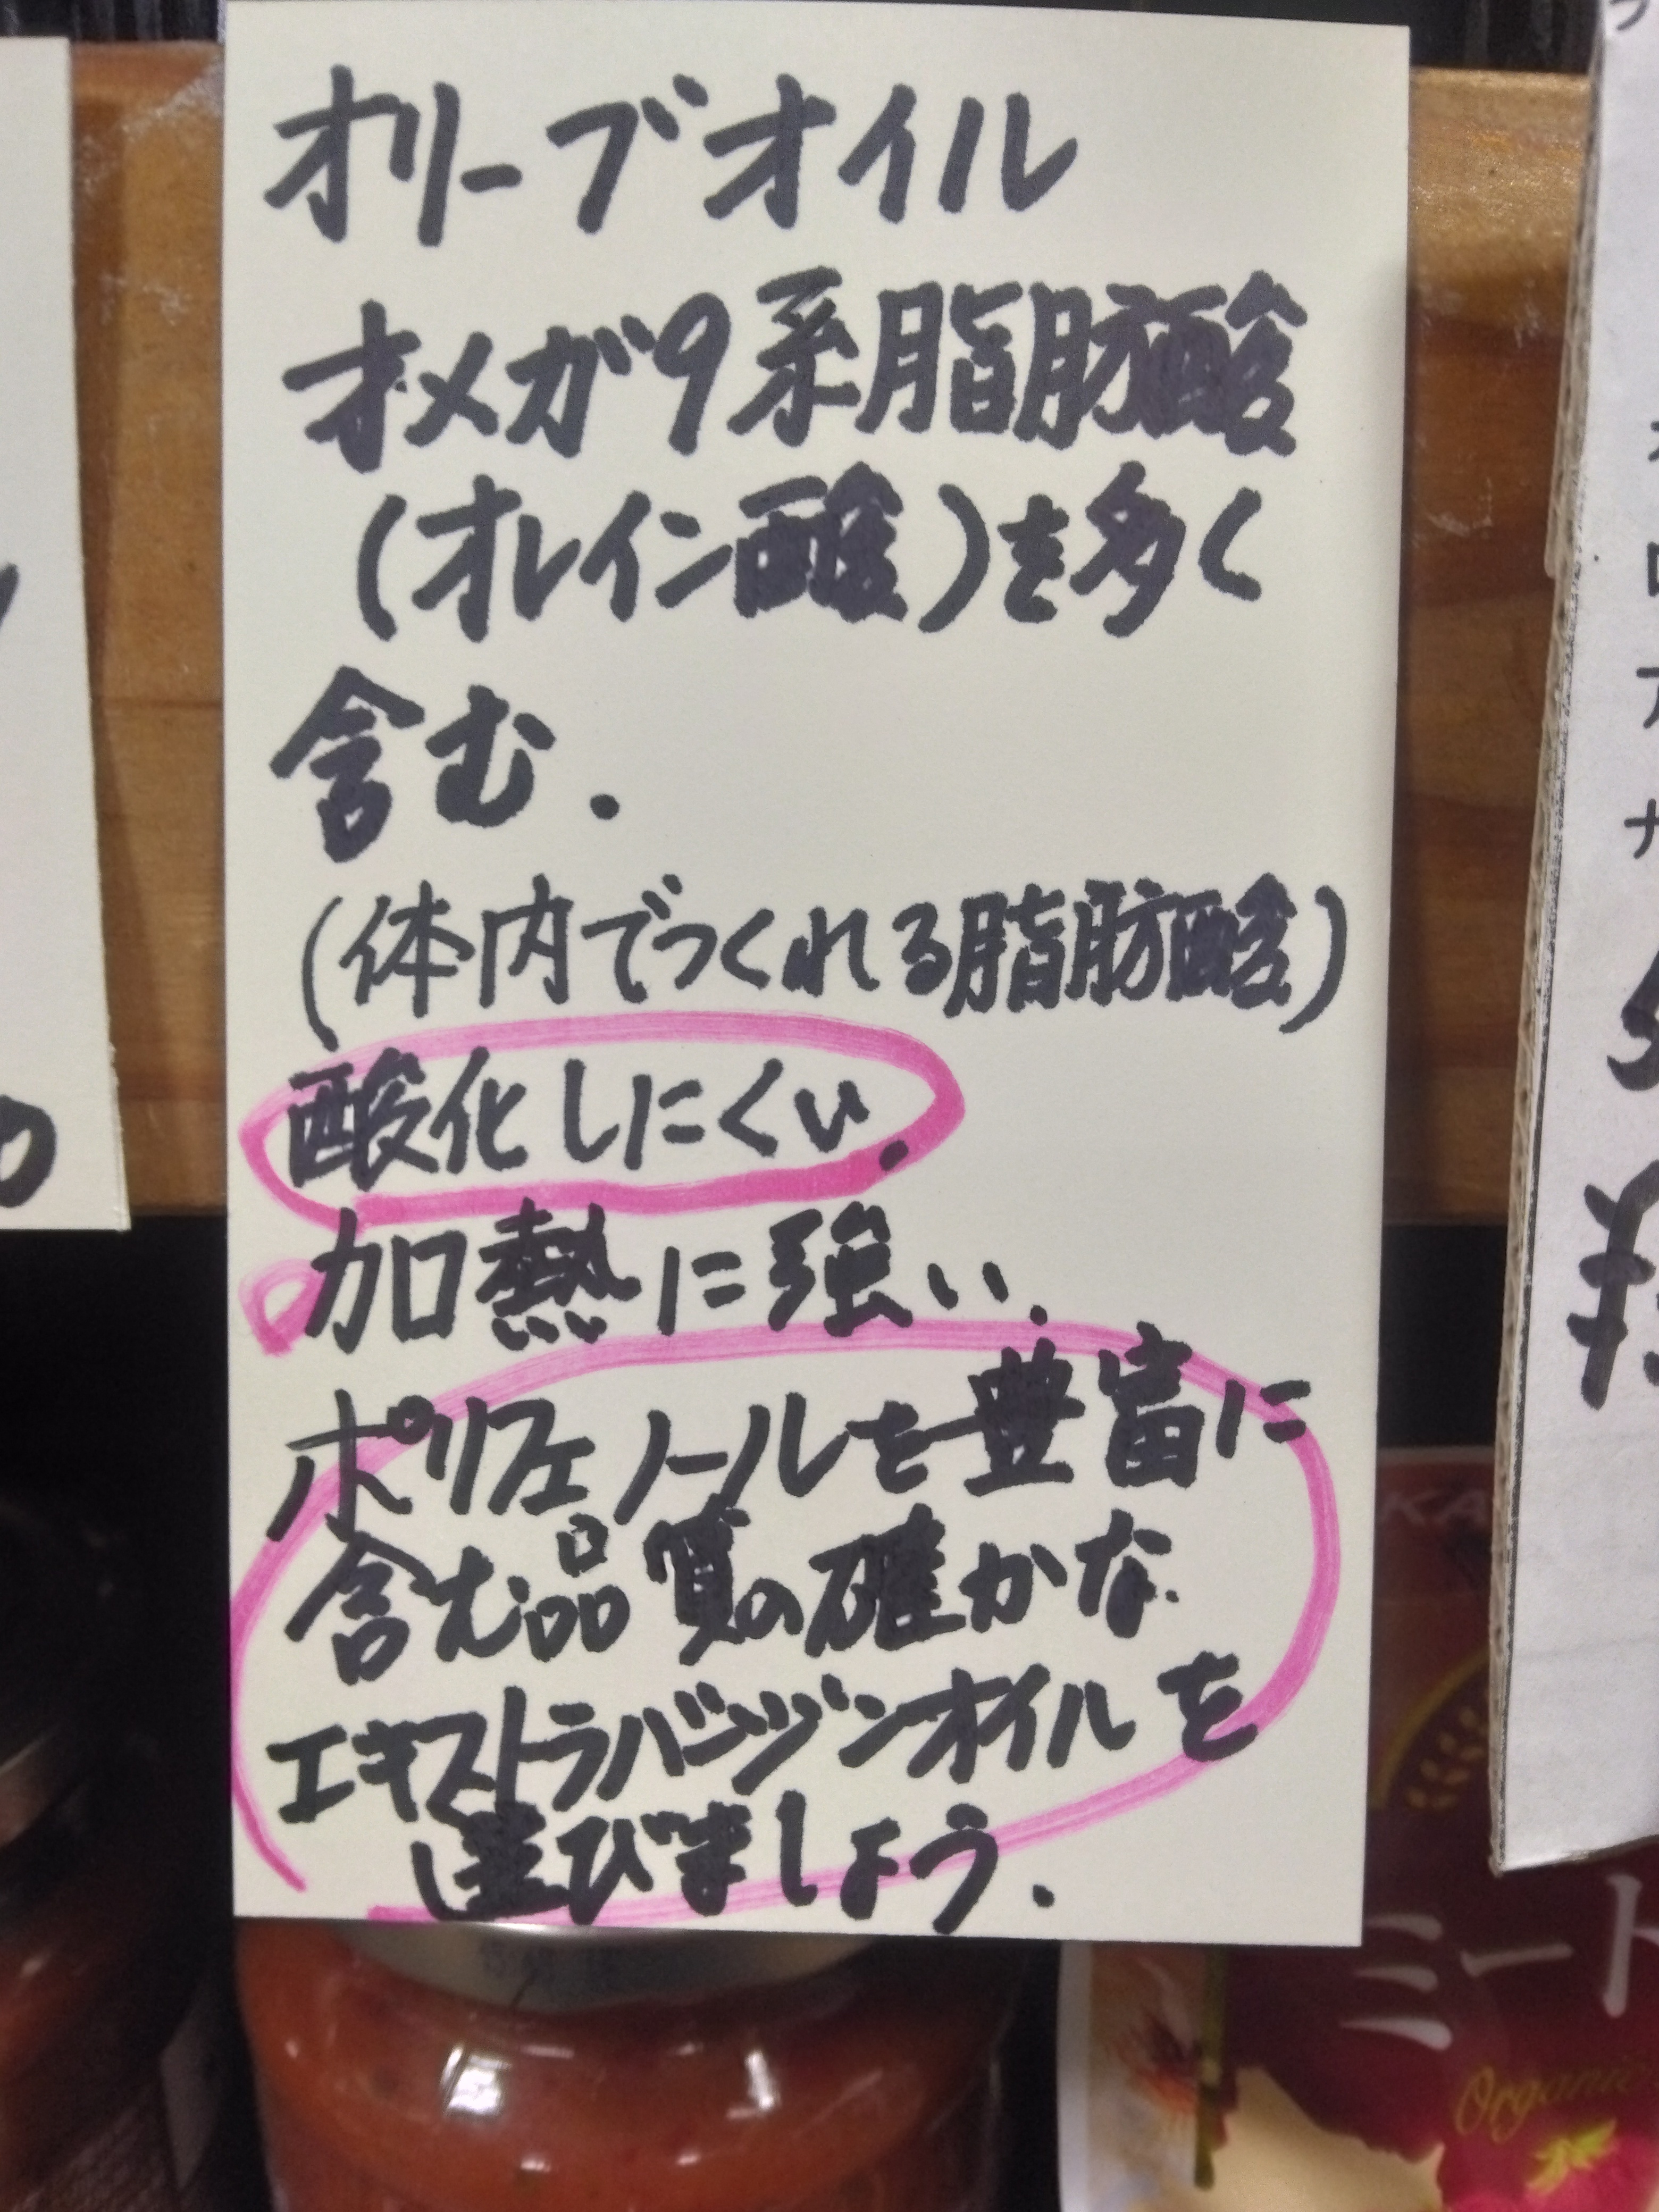 オリーブオイル
オメガ9系脂肪酸
(オレイン酸)を多く
含む.
(体内でつくれる脂肪酸)
酸化しにくい.
加熱に強い.
ポリフェノールを豊富に
含む品質の確かな
エキストラバージンオイルを
選びましょう.
ミート
Organic